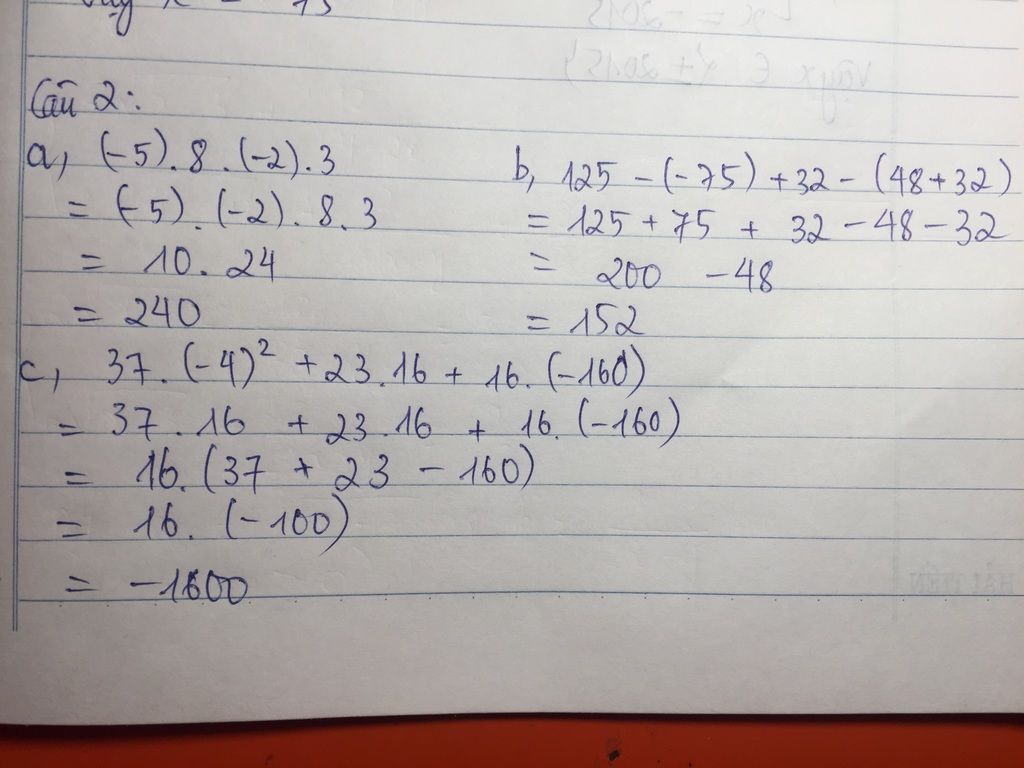 Câu 2:
a, (-5).8.(-2).3
= (-5).(-2).8.3
= 10.24
= 240
b, 125 - (-75) + 32 - (48+32)
= 125 + 75 + 32 - 48 - 32
= 200 - 48
= 152
c, 37.(-4)² + 23.16 + 16.(-160)
= 37.16 + 23.16 + 16.(-160)
= 16.(37 + 23 - 160)
= 16.(-100)
= -1600